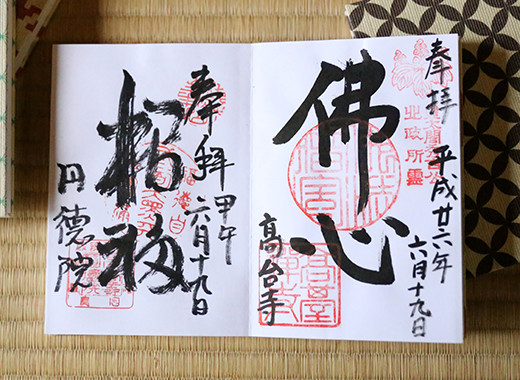 奉拝 平成廿六年
六月十九日
北政所霊
佛心
高台寺
奉拜 甲午
六月十九日
招福
円徳院